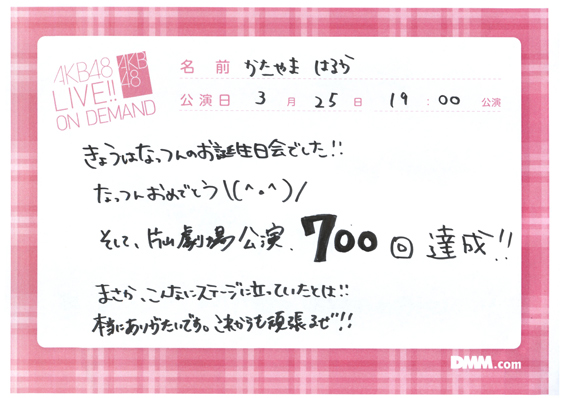 AKB48
LIVE!!
ON DEMAND
AKB
48
名前 かたやま はるか
公演日 3月25日 19:00 公演
きょうはなっつんのお誕生日会でした!!
なっつんおめでとう\(^。^)/
そして、片山劇場公演、700回達成!!
まさか、こんなにステージに立っていたとは!!
本当にありがたいです。これからも頑張るぜ!!
DMM.com